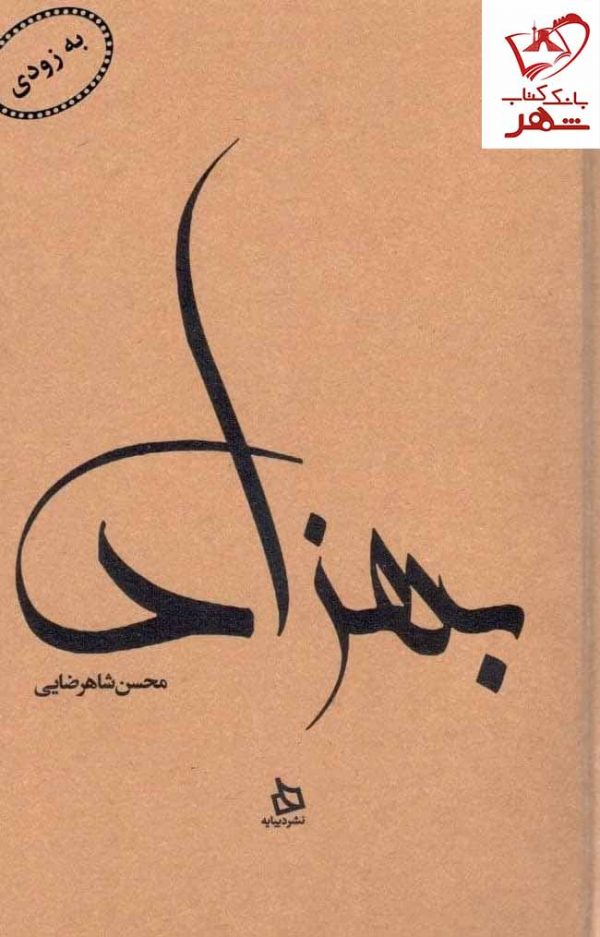 به زودی
بانک کتاب
شهر
بهزاد
محسن شاهرضایی
نشر دیبایه